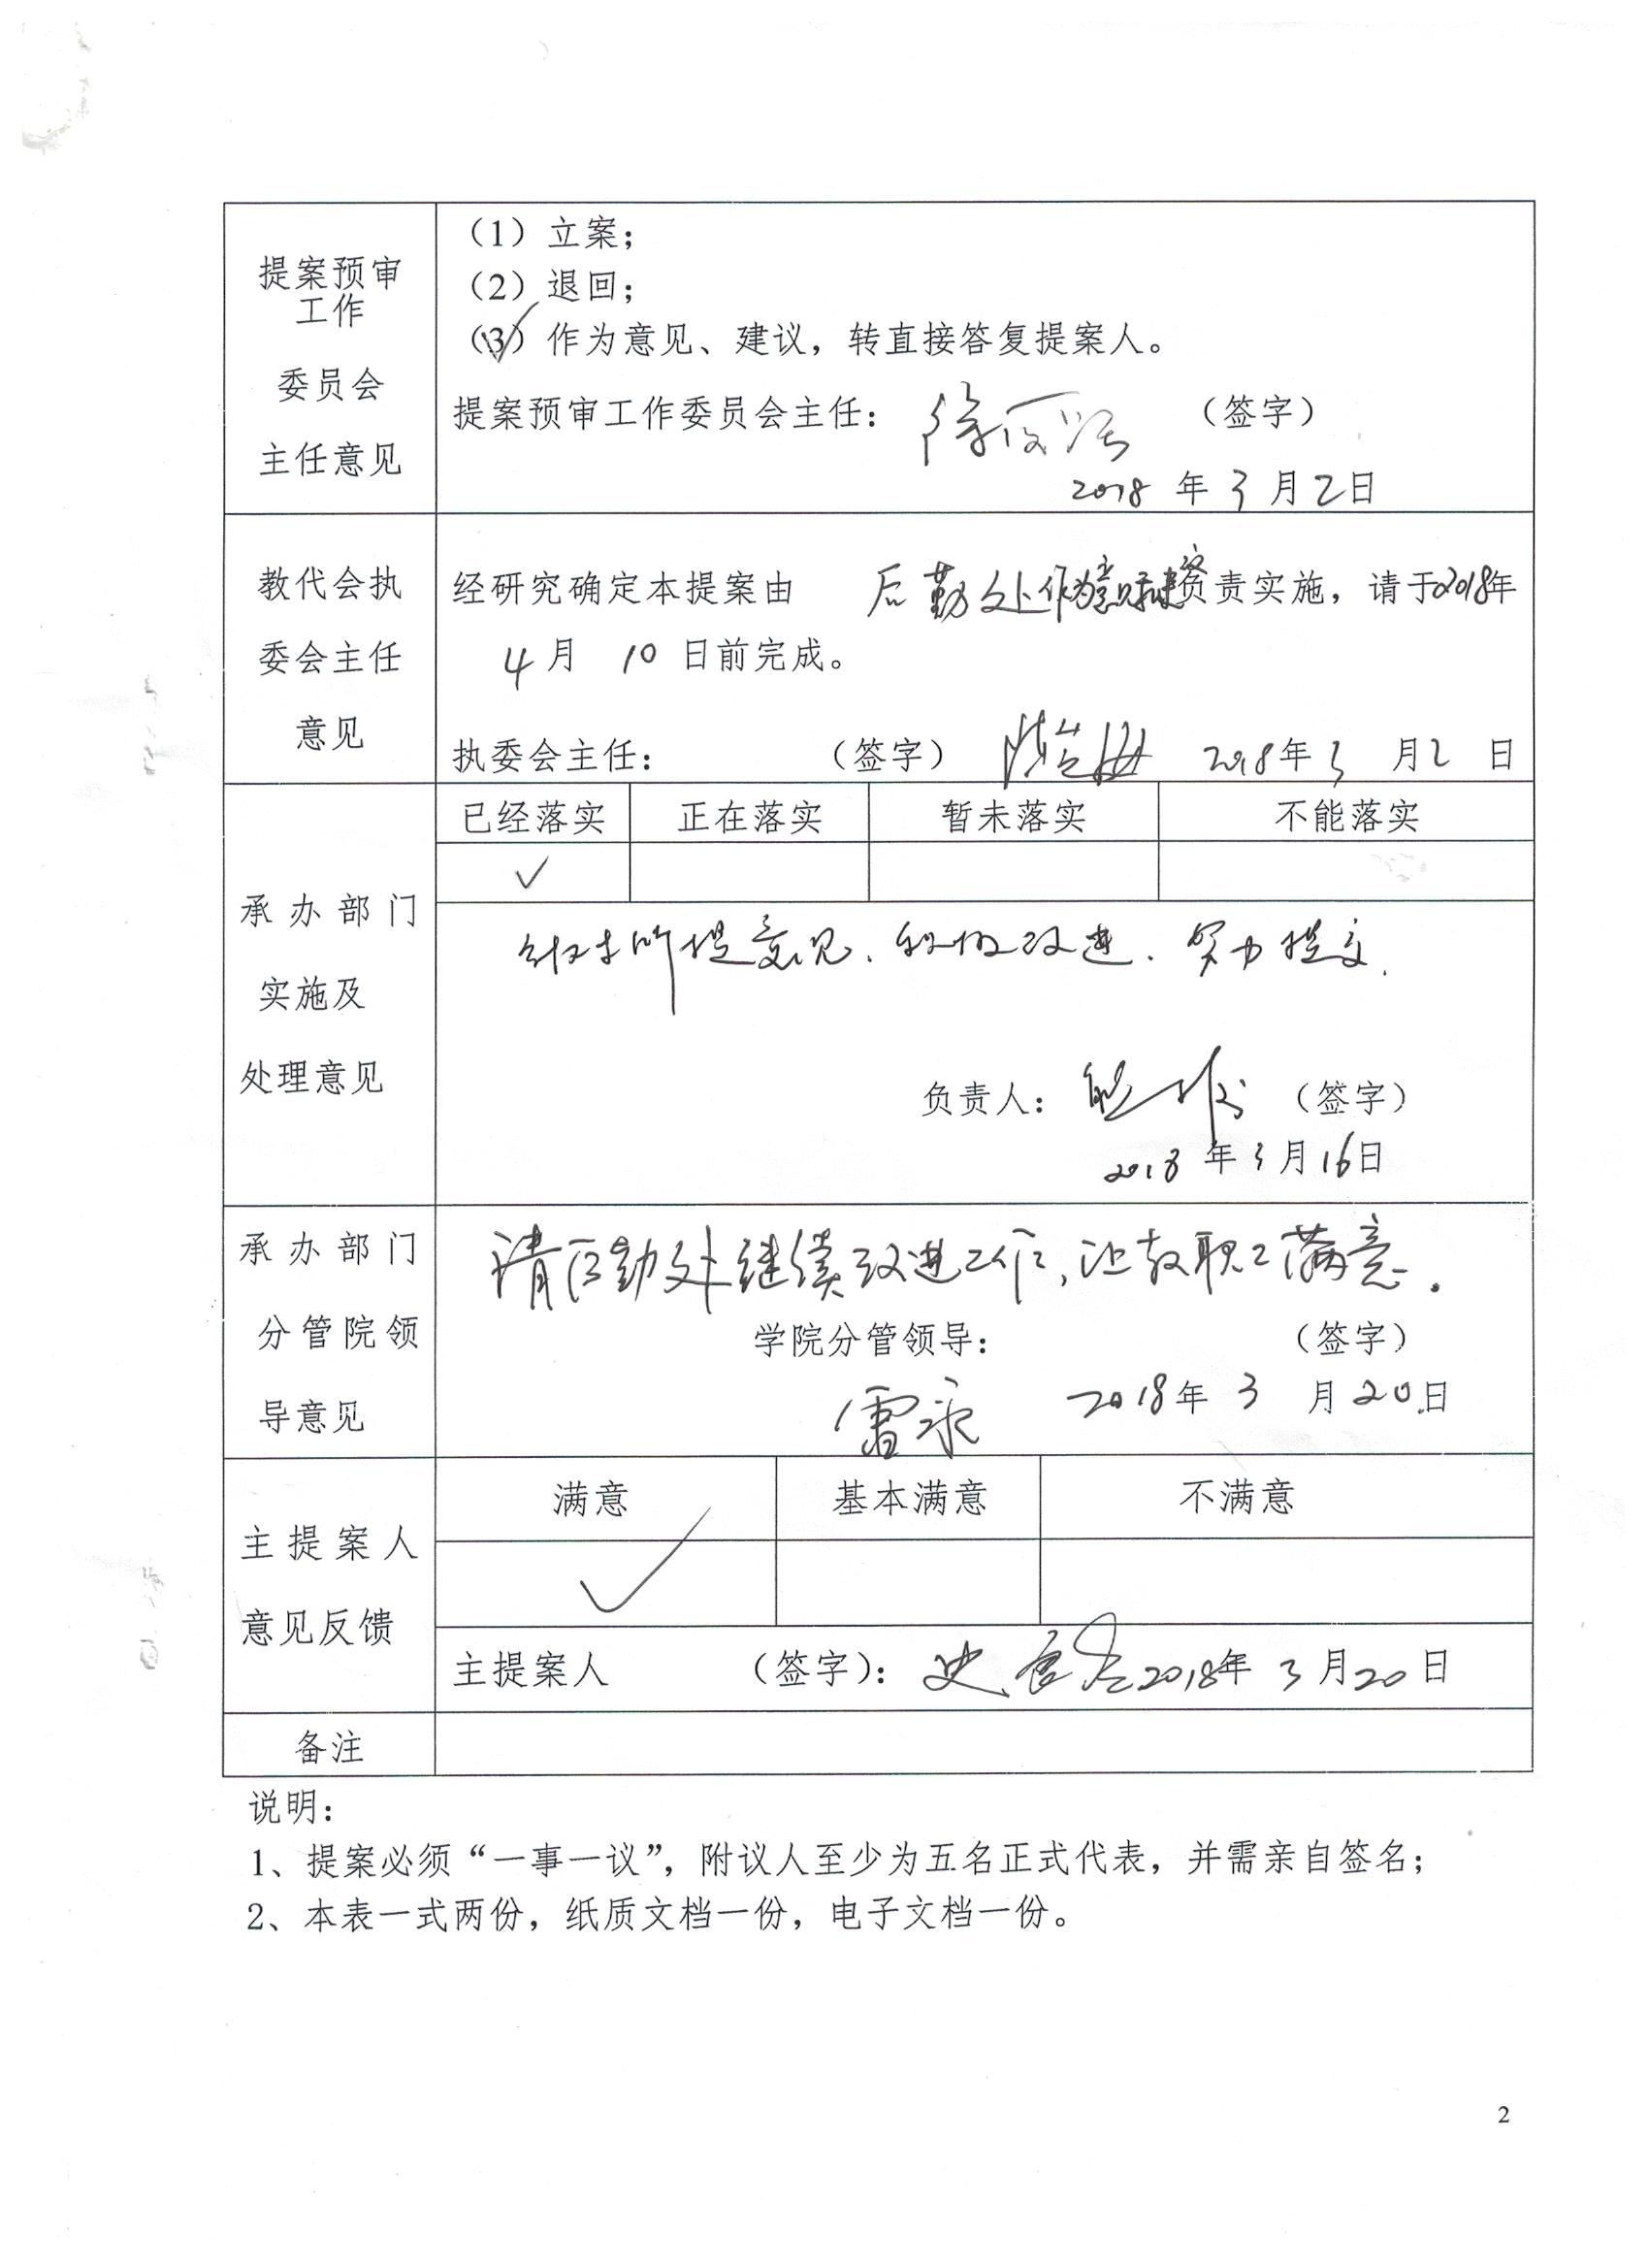 提案预审
工作
委员会
主任意见
（1）立案；
（2）退回；
（3）作为意见、建议，转直接答复提案人。
提案预审工作委员会主任： （签字）
2018 年 3 月 2 日
教代会执
委会主任
意见
经研究确定本提案由 后勤处作为意见和建议负责实施，请于2018年
4 月 10 日前完成。
执委会主任： （签字） 2018年 3 月 2 日
承办部门
实施及
处理意见
已经落实 正在落实 暂未落实 不能落实
✓
针对所提意见、积极改进、努力提交.
负责人： （签字）
2018 年 3 月 16 日
承办部门
分管院领
导意见
请后勤处继续改进工作，让教职工满意.
学院分管领导： （签字）
2018年 3 月 20 日
主提案人
意见反馈
满意 基本满意 不满意
✓
主提案人 （签字）： 2018年 3 月 20 日
备注
说明：
1、提案必须“一事一议”，附议人至少为五名正式代表，并需亲自签名；
2、本表一式两份，纸质文档一份，电子文档一份。
2